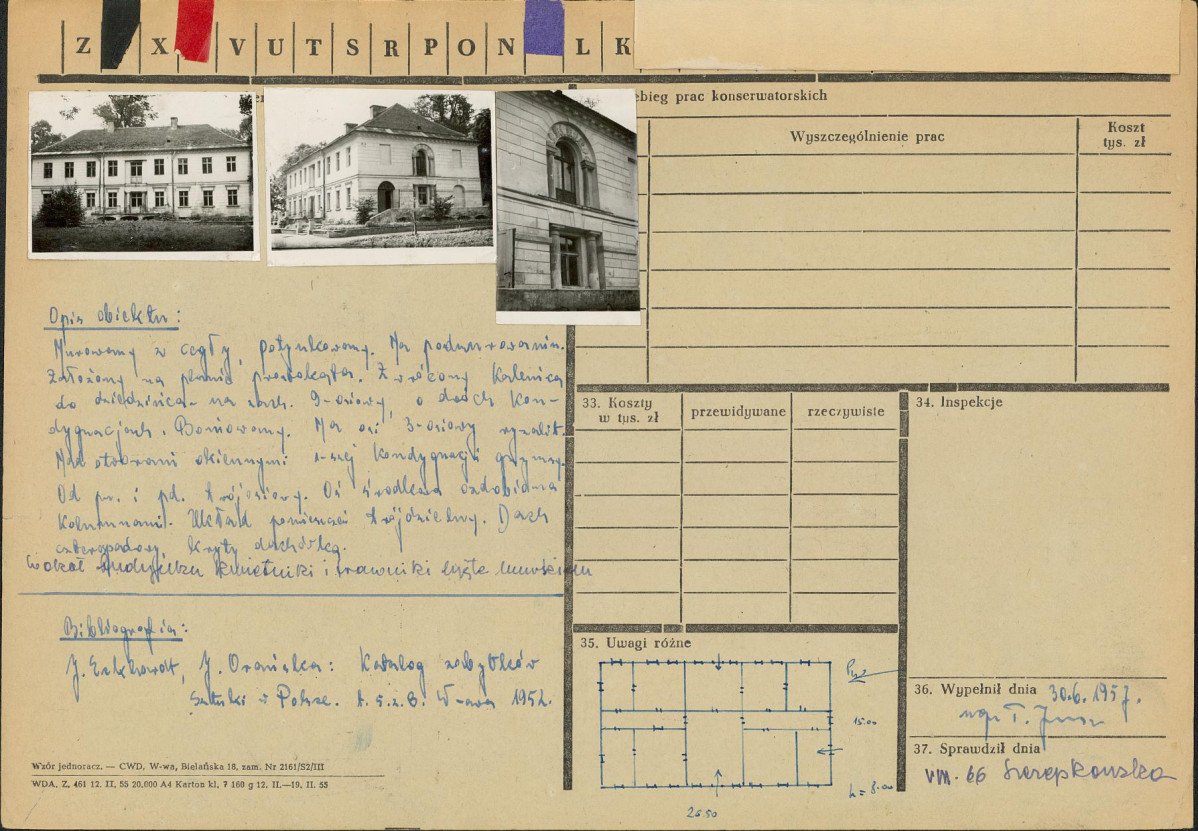 Z X V U T S R P O N L K
ebieg prac konserwatorskich
Wyszczególnienie prac
Koszt
tys. zł
Opis obiektu:
Murowany z cegły, potynkowany. Na podmurowaniu.
Założony na planie prostokąta. Zwrócony kalenicą
do dziedzińca - na zach. 9-osiowy, o dwóch kon-
dygnacjach. Boniowany. Na osi 3-osiowy ryzalit.
Nad otworami okiennymi 1-szej kondygnacji gzymsy.
Od pn. i pd. trójosiowy. Oś środkowa ozdobiona
kolumnami. Układ pomieszczeń trójdzielny. Dach
czterospadowy, kryty dachówką.
Wokół budynku kwietniki i trawniki
Bibliografia:
J. Eckhardt, J. Orańska: Katalog zabytków
Sztuki w Polsce. t. 5. z. 8. W-awa 1952.
Wzór jednoracz. — CWD, W-wa, Bielańska 18, zam. Nr 2161/S2/III
WDA. Z. 461 12. II. 55 20.000 A4 Karton kl. 7 160 g 12. II.—19. II. 55
33. Koszty
w tys. zł
przewidywane
rzeczywiste
34. Inspekcje
35. Uwagi różne
15.00
h = 8.00
26.50
36. Wypełnił dnia 30.6.1957.
mgr T.
37. Sprawdził dnia
VIII. 66 Szczepkowska